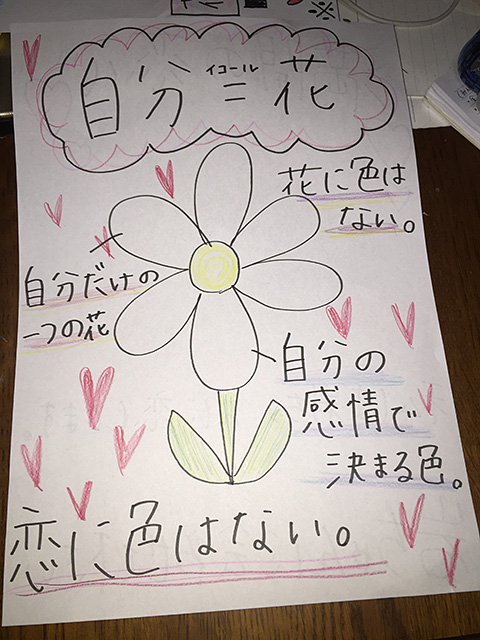 自分＝花
イコール
花に色は
ない。
自分だけの
一つの花
自分の
感情で
決まる色。
恋に色はない。